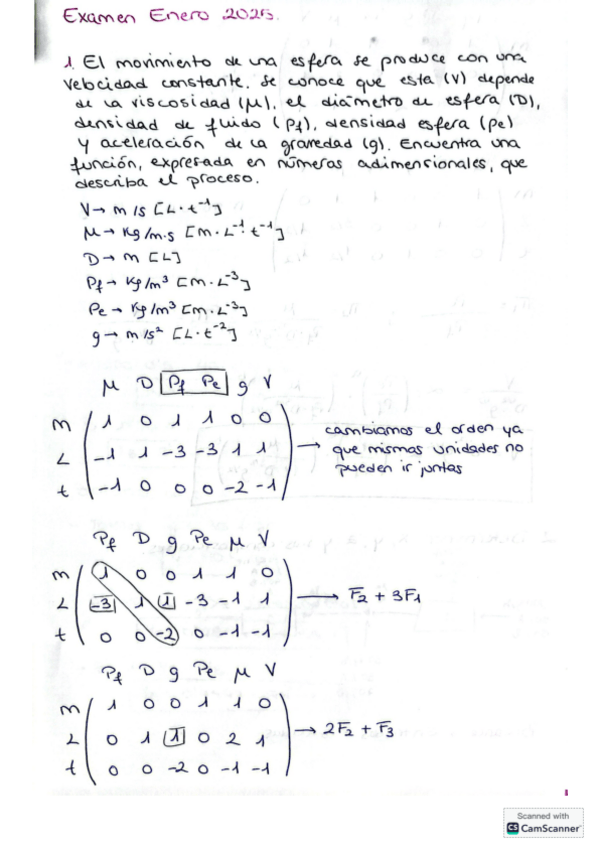 Examen Enero 2025.
1. El movimiento de una esfera se produce con una
velocidad constante. Se conoce que esta (V) depende
de la viscosidad (μ), el diámetro de esfera (D),
densidad de fluido (ρf), densidad esfera (ρe)
y aceleración de la gravedad (g). Encuentra una
función, expresada en números adimensionales, que
describa el proceso.
V → m/s [L·t⁻¹]
μ → Kg/m·s [m·L⁻¹·t⁻¹]
D → m [L]
ρf → Kg/m³ [m·L⁻³]
ρe → Kg/m³ [m·L⁻³]
g → m/s² [L·t⁻²]
μ D ρf ρe g V
m 1 0 1 1 0 0
L -1 1 -3 -3 1 1
t -1 0 0 0 -2 -1
→ cambiamos el orden ya
que mismas unidades no
pueden ir juntas
ρf D g ρe μ V
m 1 0 0 1 1 0
L -3 1 1 -3 -1 1 → F2 + 3F1
t 0 0 -2 0 -1 -1
ρf D g ρe μ V
m 1 0 0 1 1 0
L 0 1 1 0 2 1 → 2F2 + F3
t 0 0 -2 0 -1 -1
1
Scanned with
CS CamScanner